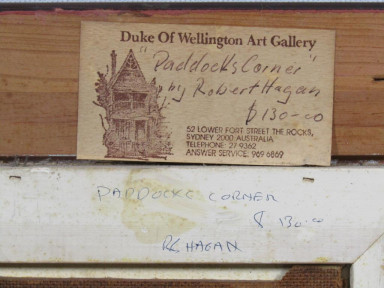 Duke Of Wellington Art Gallery
"Paddocks Corner"
by Robert Hagan
$130-00
52 LOWER FORT STREET, THE ROCKS,
SYDNEY 2000 AUSTRALIA
TELEPHONE: 27 9362
ANSWER SERVICE: 969 6869
PADDOCKS CORNER
$ 130.00
R HAGAN